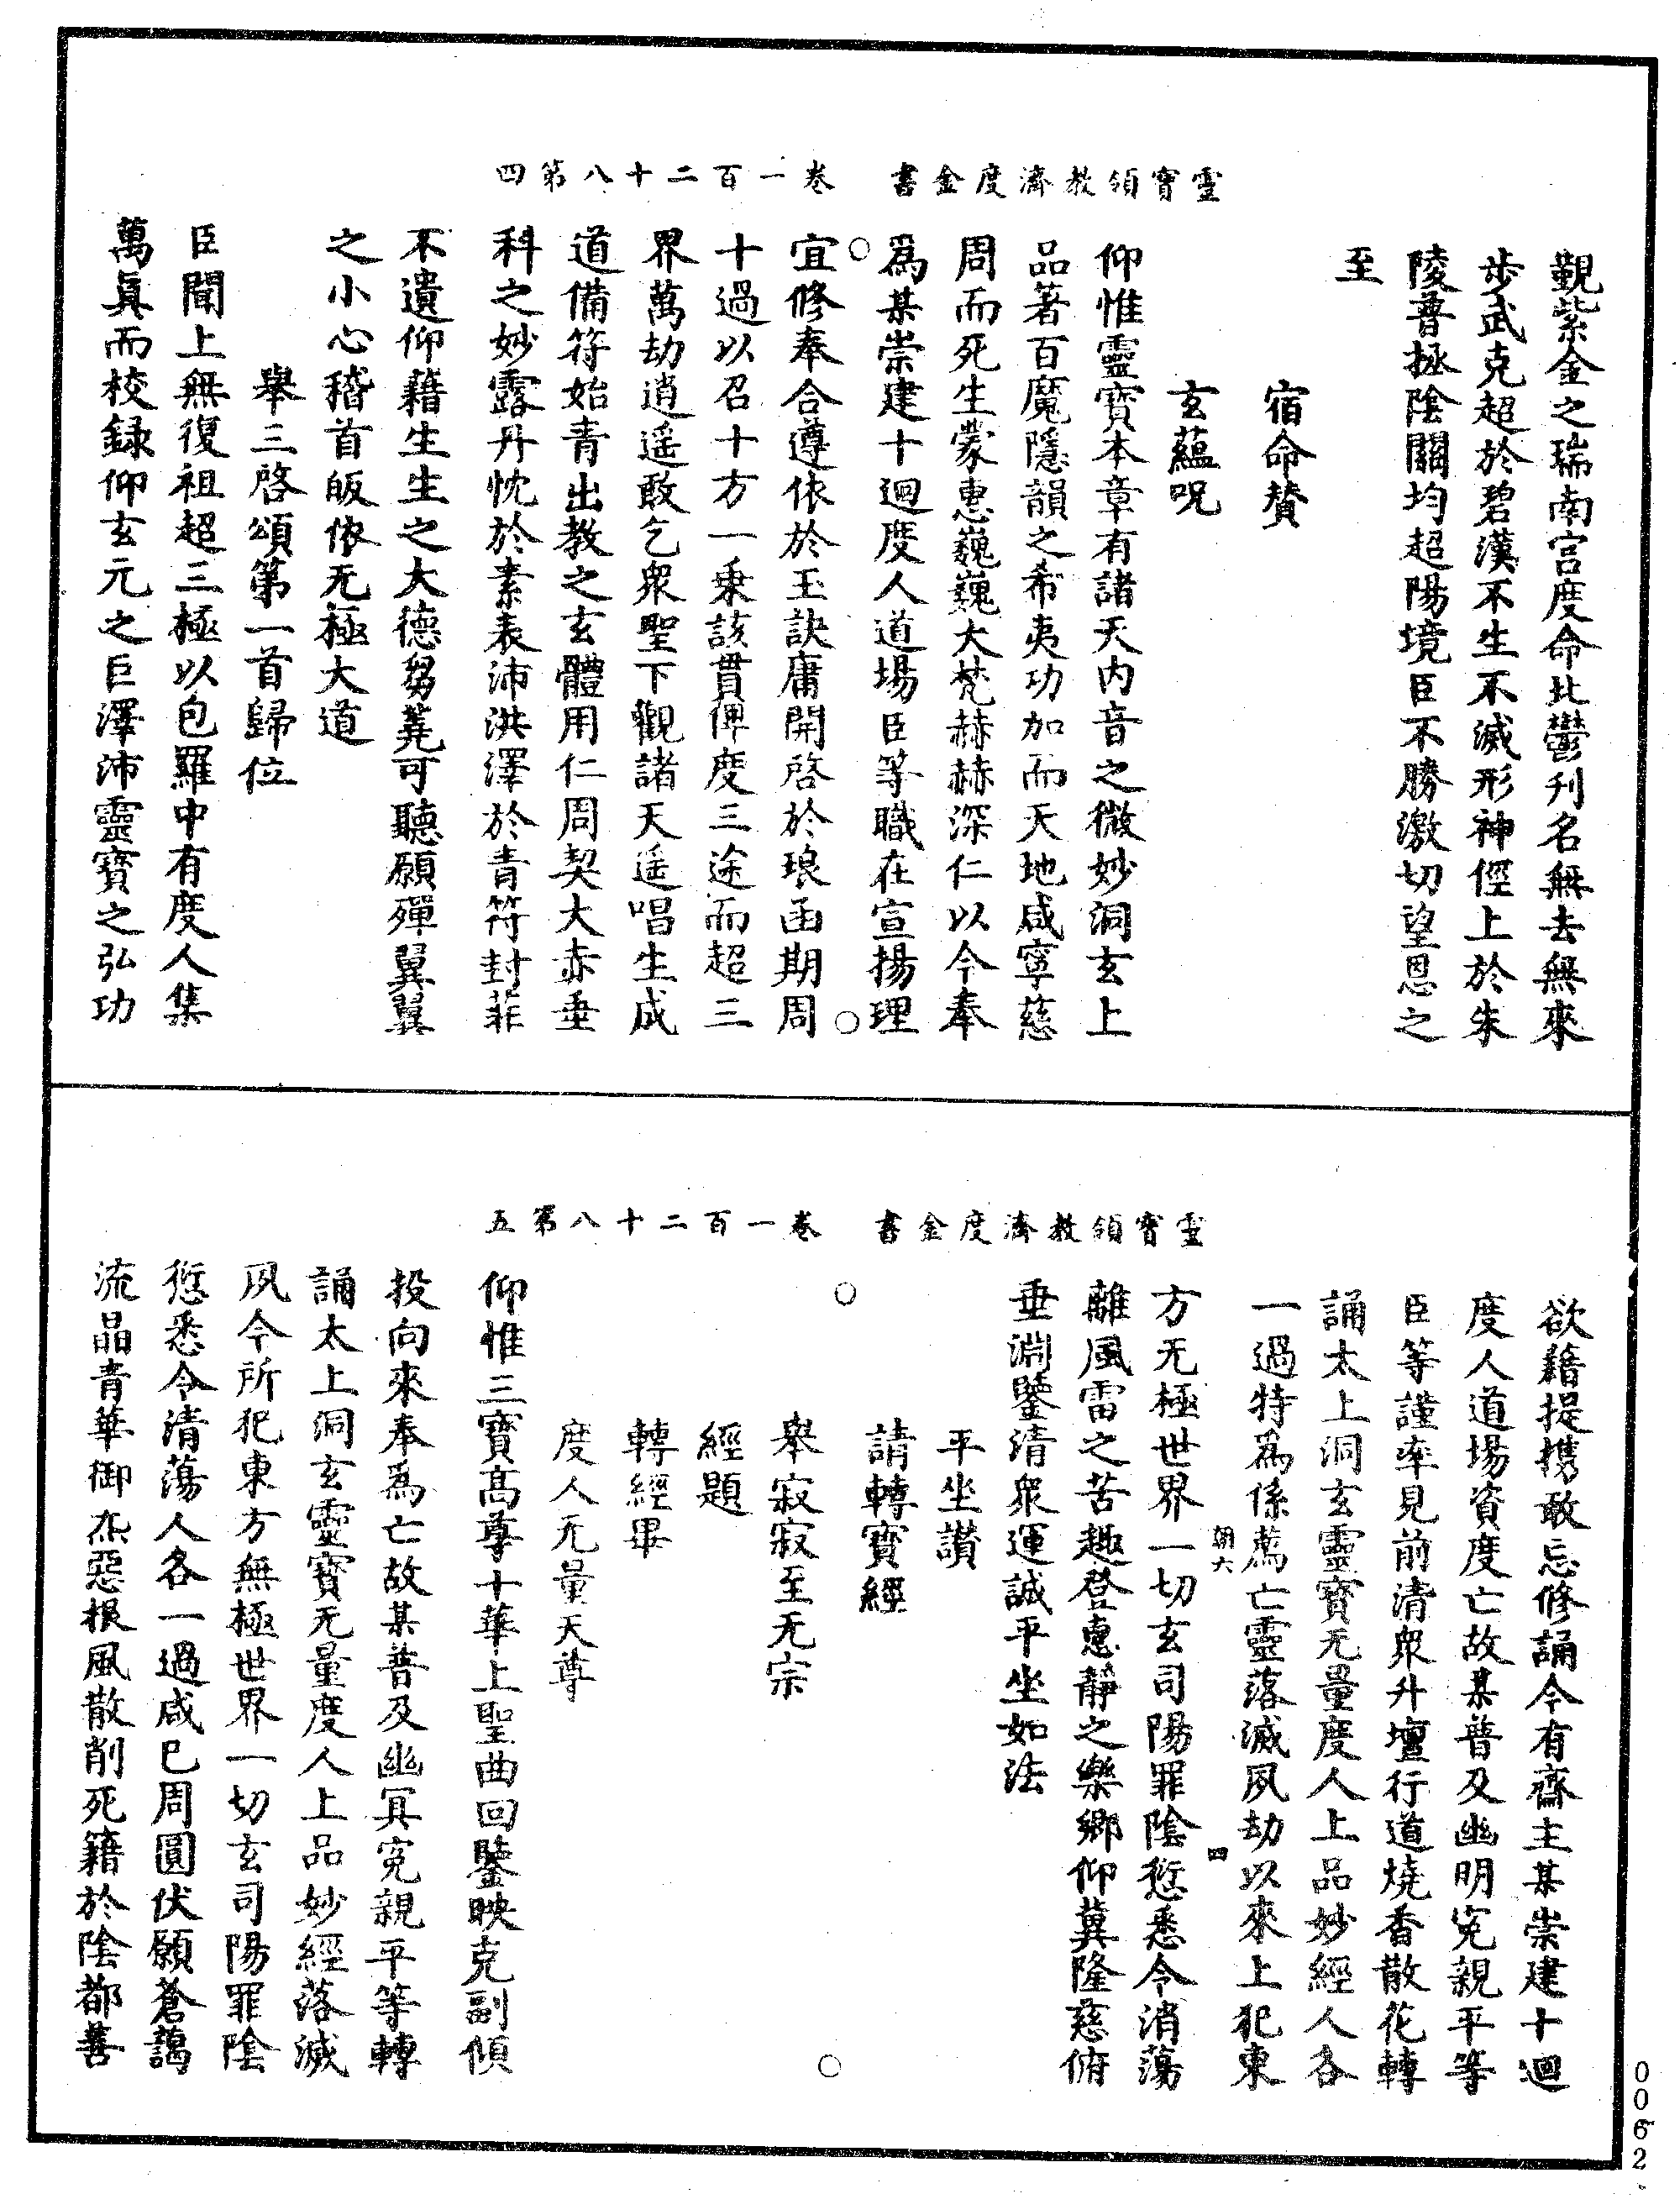 靈寶領教濟度金書　卷一百二十八第四
觀紫金之瑞南宮度命北鬱刊名無去無來
步武克超於碧漢不生不滅形神徑上於朱
陵普拯陰關均超陽境臣不勝激切望恩之
至
宿命贊
玄蘊呪
仰惟靈寶本章有諸天內音之微妙洞玄上
品著百魔隱韻之希夷功加而天地咸寧慈
周而死生蒙惠巍巍大梵赫赫深仁以今奉
爲某崇建十迴度人道場臣等職在宣揚理
宜修奉合遵依於玉訣庸開啓於琅函期周
十過以召十方一乘該貫俾度三途而超三
界萬劫逍遥敢乞眾聖下觀諸天遥唱生成
道備符始青出教之玄體用仁周契大赤垂
科之妙露丹忱於素表沛洪澤於青符封菲
不遺仰藉生生之大德芻蕘可聽願殫翼翼
之小心稽首皈依无極大道
舉三啓頌第一首歸位
臣聞上無復祖超三極以包羅中有度人集
萬眞而校録仰玄元之巨澤沛靈寶之弘功
靈寶領教濟度金書　卷一百二十八第五
欲藉提携敢忘修誦今有齋主某崇建十迴
度人道場資度亡故某普及幽明寃親平等
臣等謹率見前清眾升壇行道燒香散花轉
誦太上洞玄靈寶无量度人上品妙經人各
一過特爲係薦亡靈落滅夙劫以來上犯東
朝六　四
方无極世界一切玄司陽罪陰愆悉令消蕩
離風雷之苦趣登惠靜之樂鄉仰冀隆慈俯
垂淵鑒清眾運誠平坐如法
平坐讃
請轉寶經
舉寂寂至无宗
經題
轉經畢
度人无量天尊
仰惟三寶高尊十華上聖曲回鑒映克副傾
投向來奉爲亡故某普及幽冥寃親平等轉
誦太上洞玄靈寶无量度人上品妙經落滅
夙今所犯東方無極世界一切玄司陽罪陰
愆悉令清蕩人各一過咸已周圓伏願蒼藹
流晶青華御炁惡根風散削死籍於陰都善
0062